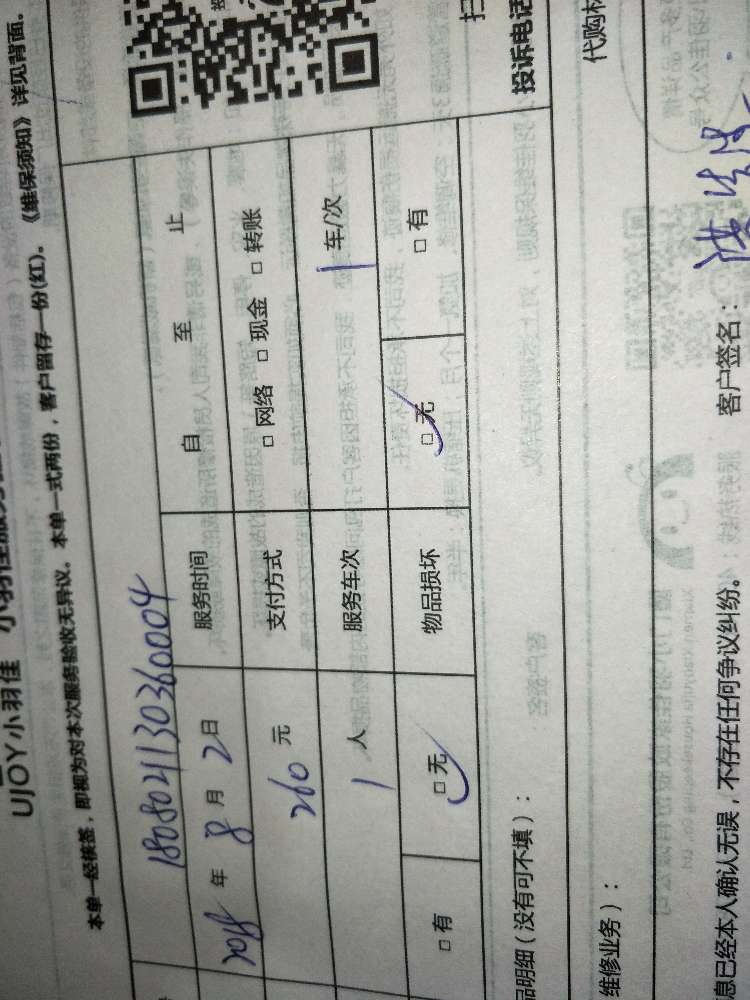 UJOY小羽佳
本单一经核签，即视为对本次服务验收无异议。本单一式两份，客户留存一份(红)。《维保须知》详见背面。
18080241130360004
2018年8月2日 服务时间 自 至 止
260元 支付方式 □网络 □现金 □转账
1人 服务车次 1车/次
□有 □无 物品损坏 □无 □有
品明细（没有可不填）：
扫
投诉电话
代购材
维修业务）：
息已经本人确认无误，不存在任何争议纠纷。 客户签名：